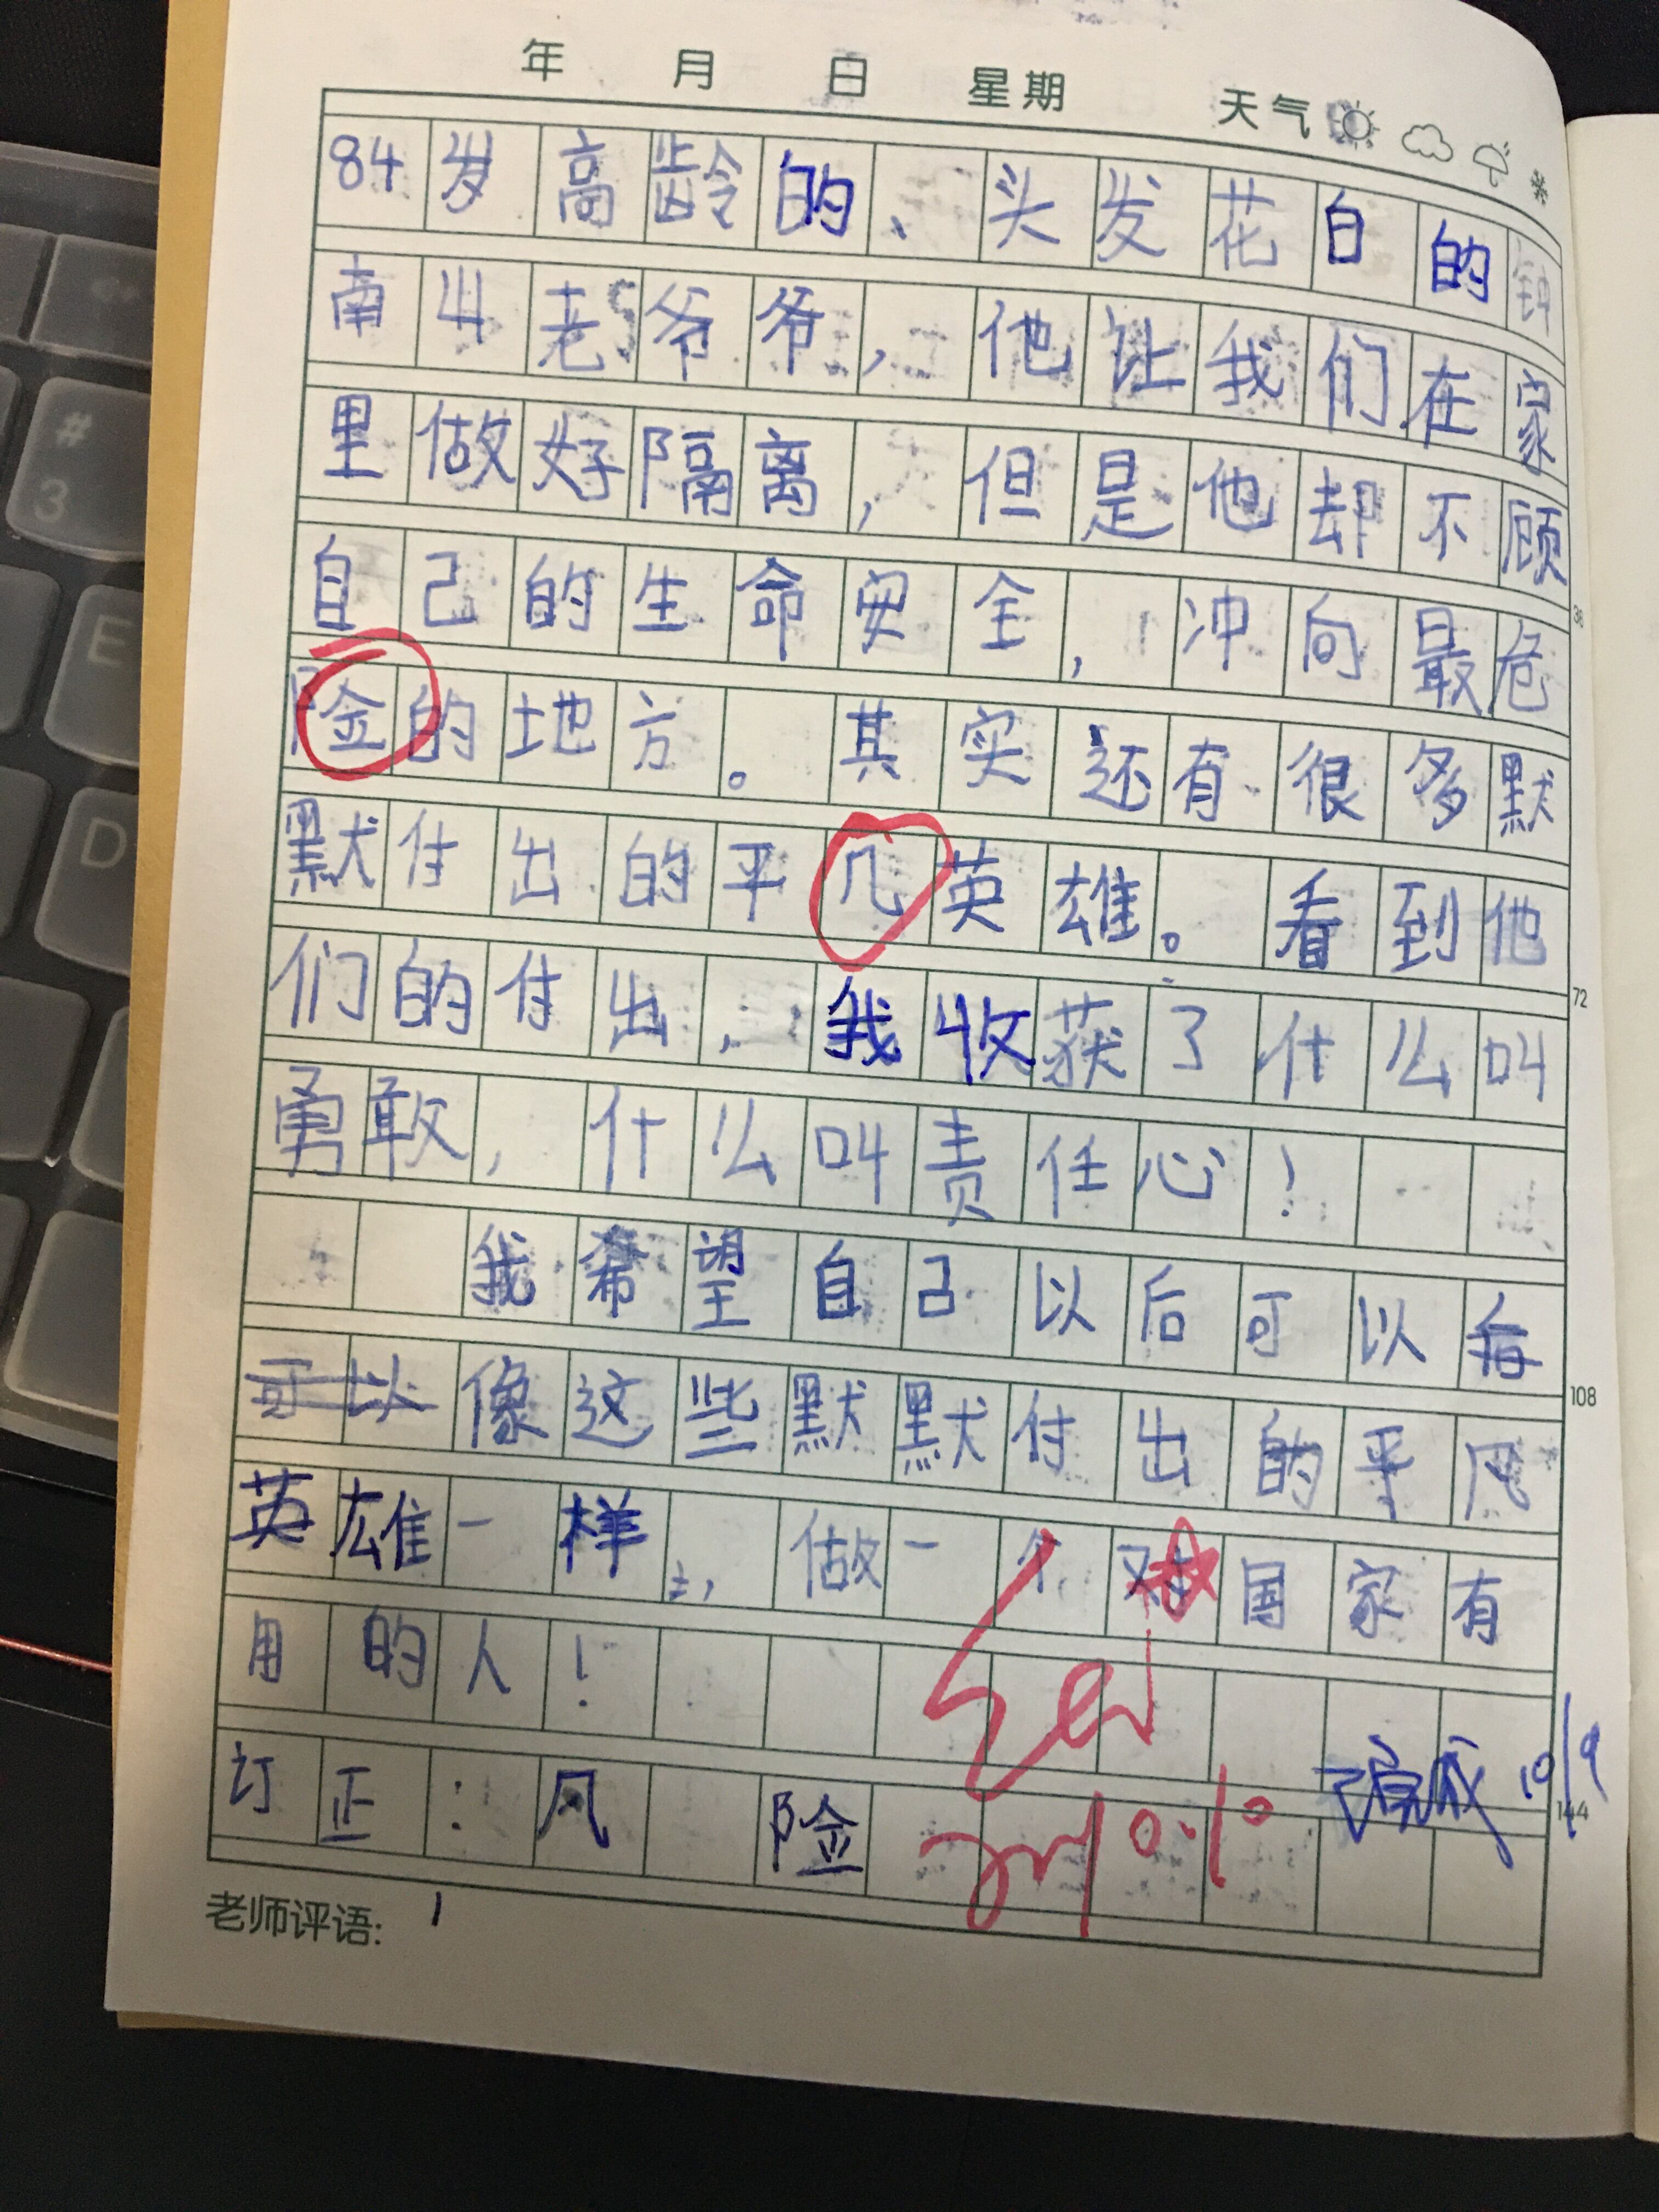 年 月 日 星期 天气
84岁高龄的、头发花白的钟
南山老爷爷，他让我们在家
里做好隔离，但是他却不顾
自己的生命安全，冲向最危
险的地方。其实还有很多默
默付出的平几英雄。看到他
们的付出，我收获了什么叫
勇敢，什么叫责任心！
我希望自己以后可以每
可以像这些默默付出的平凡
英雄一样，做一个对国家有
用的人！
订正：凡 险
老师评语:
36
72
108
144
10.10
10/9